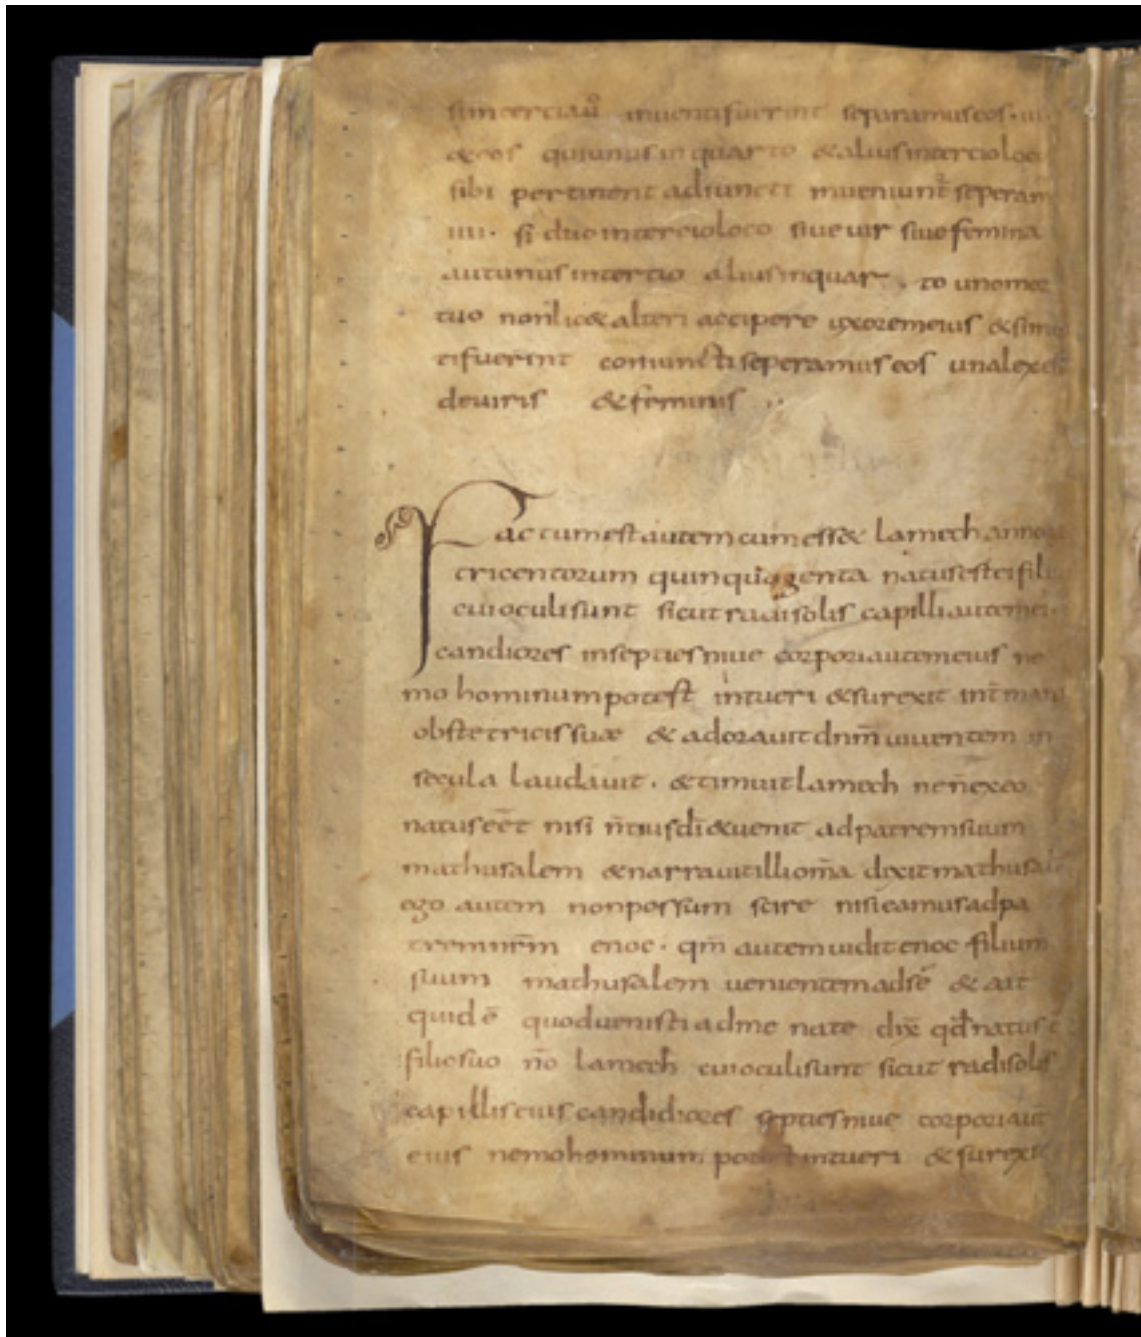 sintertiaū inuentifuerint separamuseos·iii·
&eos quiunusinquarto &aliusintercioloco
sibi pertinent adiuncti inueniunt̄ seperam
iiii· si duointercioloco siueuir siuefemina
autunusintertio aliusinquar to unomor
tuo nonlic&alteri accipere uxoremeius &sine
tifuerint coniunctiseperamuseos unalex
deuiris &feminis ··
Factumestautemcumess& lamech annor
tricentorum quinquagenta natusesteifili
cuioculisunt sicutradisolis capilliautemei·
candiores inseptiesniue corporiautemeius ne
mo hominumpotest intueri &surexit int̄manu
obstetricissuæ & adorauitdnm̄uiuentem in
secula laudauit· &timuitlamech nen̄exeo
natuseēt nisi n̄tiusdī&uenit adpatremsuum
mathusalem &narrauitilliom̄a dixitmathusale
ego autem nonpossum scire nisieamusadpa
tremnr̄m enoc· qm̄ autemuiditenoc filium
suum mathusalem uenientemadsē & ait
quidē quoduenistiadme nate dix̄ qd̄natus
filiosuo nōo lamech cuioculisunt sicut radisolis
capilliseius candidiores septiesniue corporiaut̄
eius nemohominum potestintueri &surexit